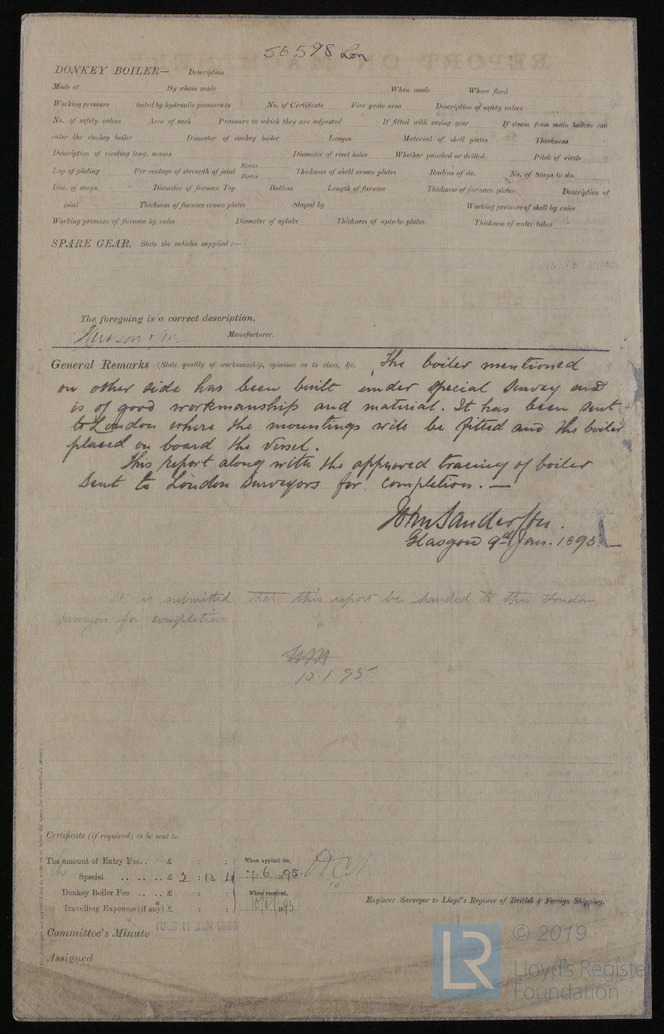 56598 Lon
DONKEY BOILER— Description
Made at By whom made When made Where fixed
Working pressure tested by hydraulic pressure to No. of Certificate Fire grate area Description of safety valves
No. of safety valves Area of each Pressure to which they are adjusted If fitted with easing gear If steam from main boilers can
enter the donkey boiler Diameter of donkey boiler Length Material of shell plates Thickness
Description of riveting long. seams Diameter of rivet holes Whether punched or drilled Pitch of rivets
Lap of plating Per centage of strength of joint Rivets Plates Thickness of shell crown plates Radius of do. No. of Stays to do.
Dia. of stays. Diameter of furnace Top Bottom Length of furnace Thickness of furnace plates Description of
joint Thickness of furnace crown plates Stayed by Working pressure of shell by rules
Working pressure of furnace by rules Diameter of uptake Thickness of uptake plates Thickness of water tubes
SPARE GEAR. State the articles supplied :—
The foregoing is a correct description,
Manufacturer.
General Remarks (State quality of workmanship, opinions as to class, &c. The boiler mentioned
on other side has been built under special survey and
is of good workmanship and material. It has been sent
to London where the mountings will be fitted and the boiler
placed on board the vessel.
This report along with the approved tracing of boiler
sent to London Surveyors for completion. —
John Sanderson.
Glasgow 9th Jan. 1895.
It is submitted that this report be handed to the London
Surveyors for completion
10.1.95
Certificate (if required) to be sent to
The amount of Entry Fee. . £ : : When applied for,
Special . . . . £ 2 : 13 : 4 7.6.1895
Donkey Boiler Fee . . . . £ : : When received,
Travelling Expenses (if any) £ : : 10.6.1895
Engineer Surveyor to Lloyd's Register of British & Foreign Shipping.
Committee's Minute TUES 11 JUN 1895
Assigned
© 2019
LR Lloyd's Register
Foundation